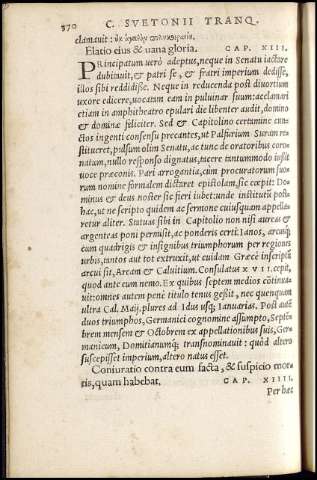 370 C. SVETONII TRANQ.
clamauit: οὐκ ἀγαθὸν πολυκοιρανίη.
Elatio eius & uana gloria. CAP. XIII.
PRincipatum uerò adeptus, neque in Senatu iactare
dubitauit, & patri se, & fratri imperium dedisse,
illos sibi reddidisse. Neque in reducenda post diuortium
uxore edicere, uocatam eam in puluinar suum: acclamari
etiam in amphitheatro epulari die libenter audijt, domino
& dominæ feliciter. Sed & Capitolino certamine cun-
ctos ingenti consensu precantes, ut Palfurium Suram re-
stitueret, pulsum olim Senatu, ac tunc de oratoribus coro-
natum, nullo responso dignatus, tacere tantummodo iussit
uoce præconis. Pari arrogantia, cùm procuratorum suo-
rum nomine formalem dictaret epistolam, sic cœpit: Do-
minus & deus noster sic fieri iubet: unde institutū post-
hac, ut ne scripto quidem ac sermone cuiusquam appella-
retur aliter. Statuas sibi in Capitolio non nisi aureas &
argenteas poni permisit, ac ponderis certi: Ianos, arcusq́;
cum quadrigis & insignibus triumphorum per regiones
urbis, tantos ac tot extruxit, ut cuidam Græcè inscriptū
arcui sit, Arcum & Caluitium. Consulatus XVII. cepit,
quod ante eum nemo. Ex quibus septem medios cōtinua-
uit: omnes autem penè titulo tenus gessit, nec quenquam
ultra Cal. Maij, plures ad Idus usq; Ianuarias. Post autē
duos triumphos, Germanici cognomine assumpto, Septē-
brem mensem & Octobrem ex appellationibus suis, Ger-
manicum, Domitianumq́; transnominauit: quòd altero
suscepisset imperium, altero natus esset.
Coniuratio contra eum facta, & suspicio mor-
tis, quam habebat. CAP. XIIII.
Per hæc